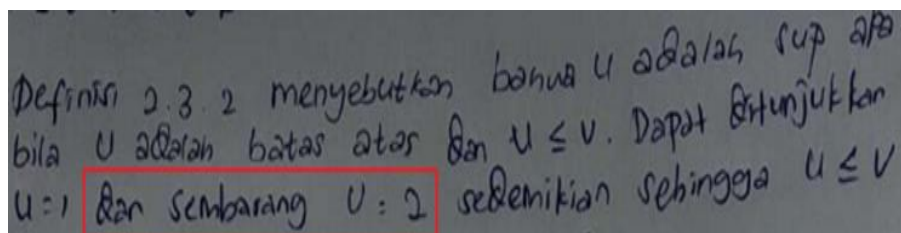 Definisi 2.3.2 menyebutkan bahwa u adalah sup apa
bila U adalah batas atas dan u ≤ v. Dapat ditunjukkan
u = 1 dan sembarang U = 2 sedemikian sehingga u ≤ v